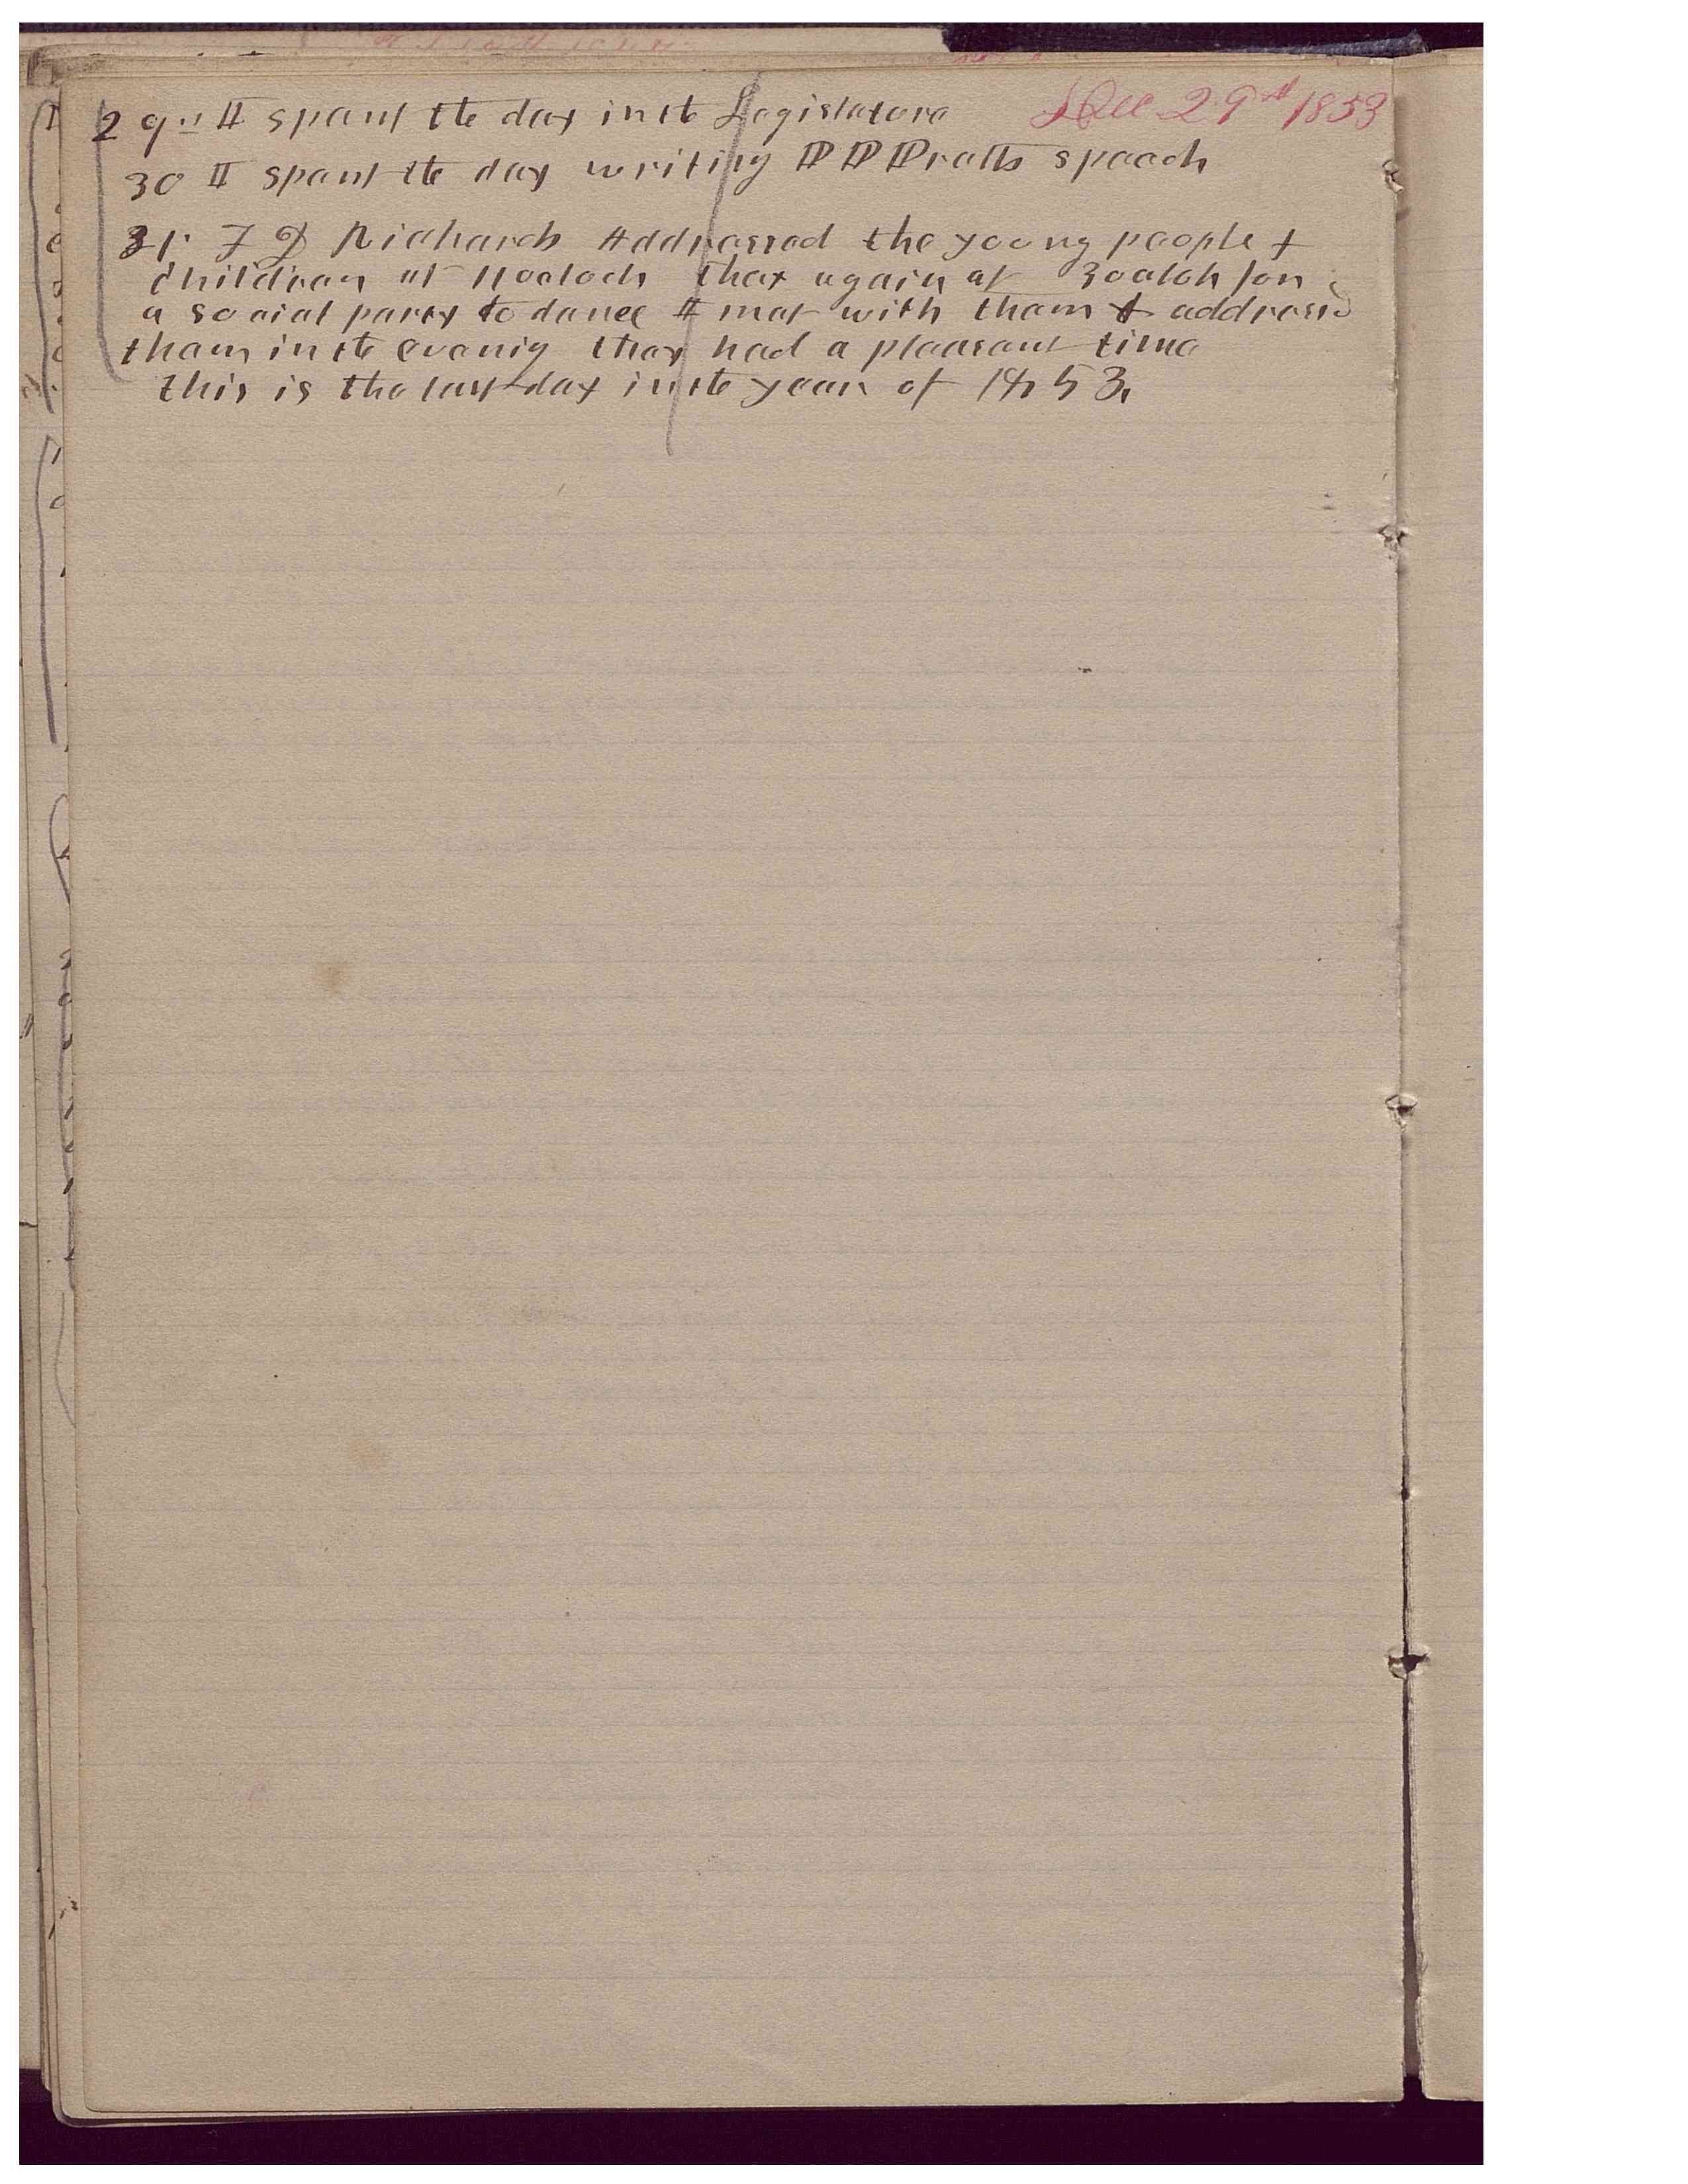 Dec 29th 1853
29th I spent the day in the Legislature
30 I spent the day writing P P Pratts speech
31st F D Richards Addressed the young people &
children at 11 oclock they again at 3 oclock for
a social party to dance I met with them & addressed
them in the evenig they had a pleasant time
this is the last day in the year of 1853.